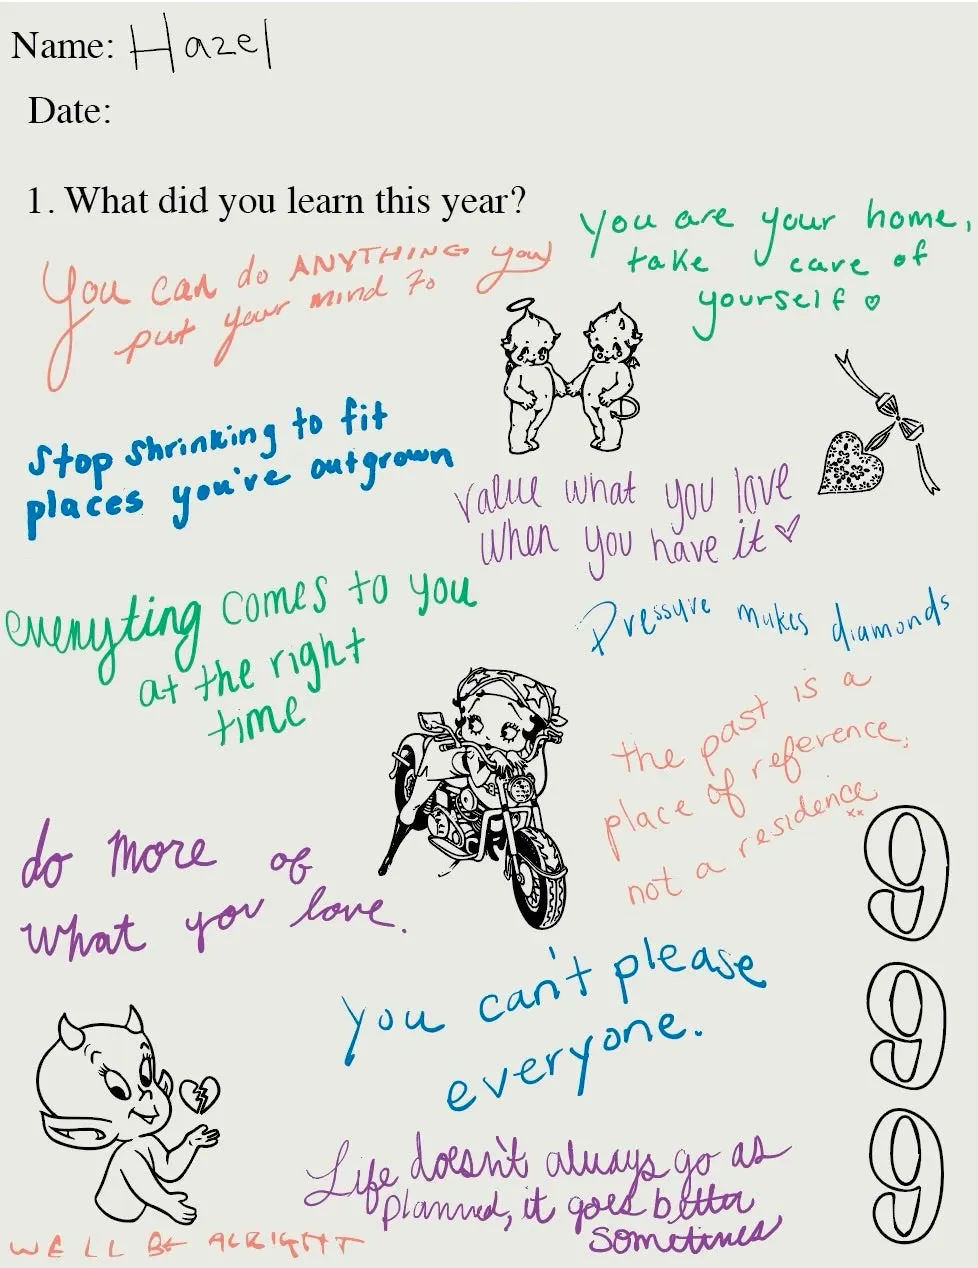 Name: Hazel
Date:
1. What did you learn this year?
You can do ANYTHING you
put your mind to
you are your home,
take care of
yourself ♡
Stop Shrinking to fit
places you've outgrown
value what you love
when you have it ♡
everyting comes to you
at the right
time
Pressure makes diamonds
the past is a
place of reference,
not a residence
xx
do more of
what you love.
you can't please
everyone.
9
9
9
Life doesn't always go as
planned, it goes better
sometimes
WE LL BE ALRIGHT